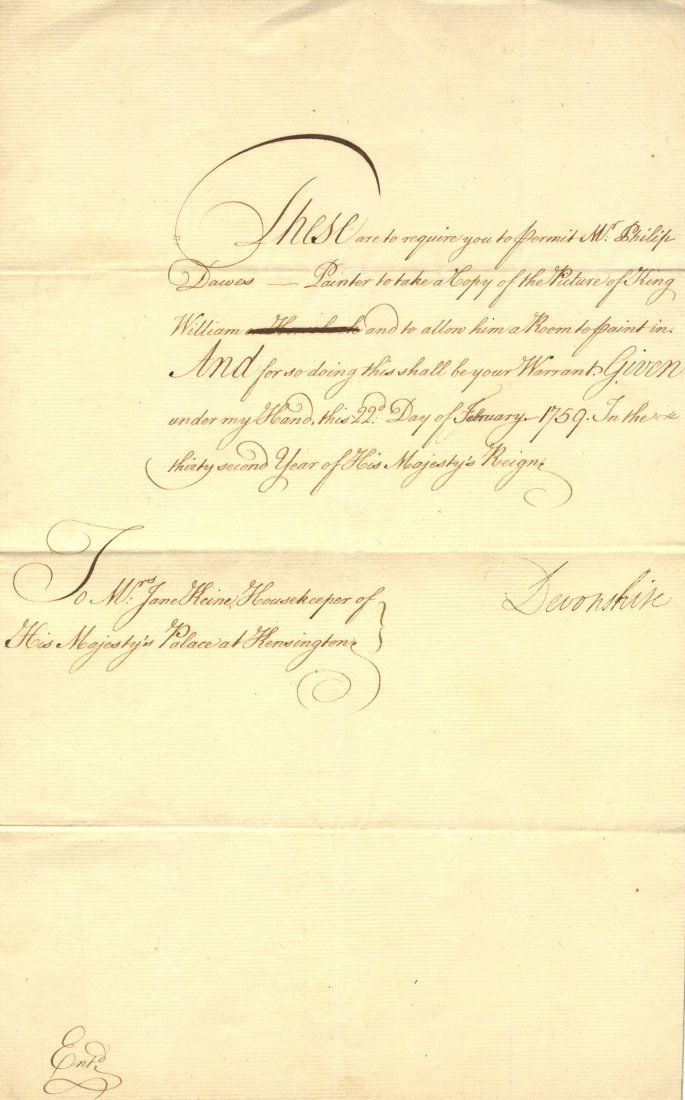 These are to require you to permit Mr. Philip
Dawes — Painter to take a Copy of the Picture of King
William and to allow him a Room to paint in.
And for so doing this shall be your Warrant, Given
under my Hand, this 22d. Day of February 1759. In the
thirty second Year of His Majesty's Reign.
To Mrs. Jane Keine, Housekeeper of
His Majesty's Palace at Kensington.
Devonshire
Entd.